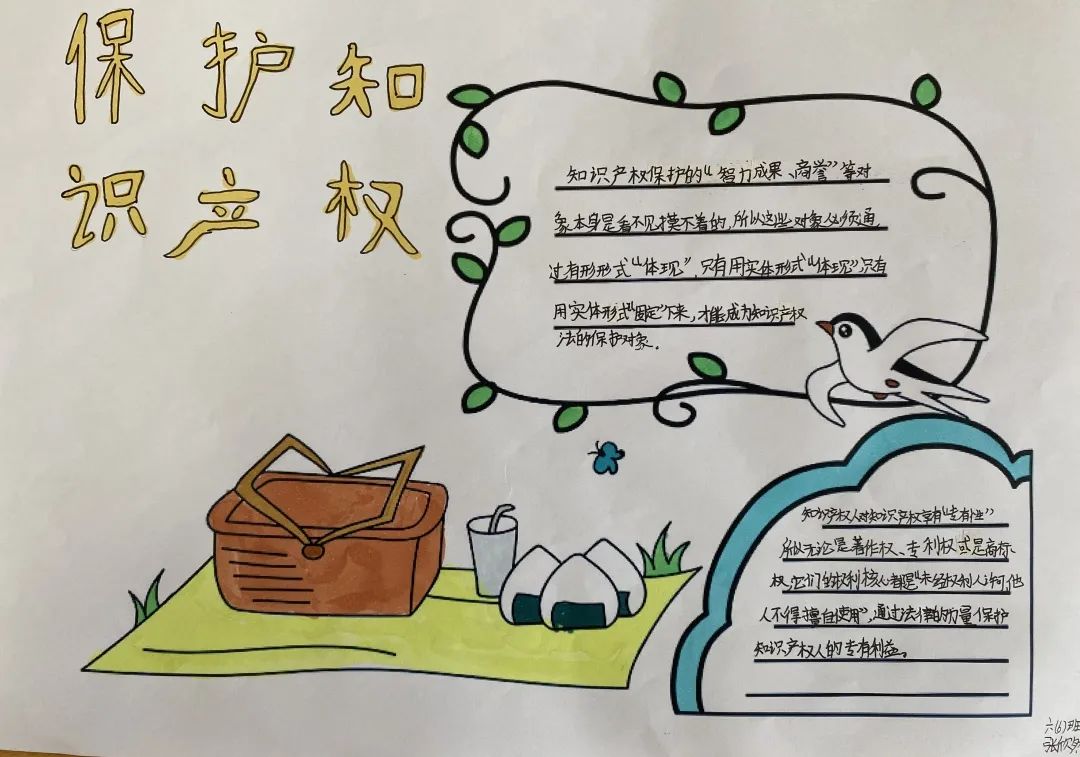 保护知
识产权
知识产权保护的“智力成果、商誉”等对
象本身是看不见摸不着的,所以这些对象必须通
过有形形式“体现”,只有用实体形式“体现”只有
用实体形式“固定”下来,才能成为知识产权
法的保护对象。
知识产权人对知识产权享有“专有性”
所以无论是著作权、专利权或是商标
权,它们的权利核心都是“未经权利人许可,他
人不得擅自使用”,通过法律的力量保护
知识产权人的专有利益。
六(6)班
张欣